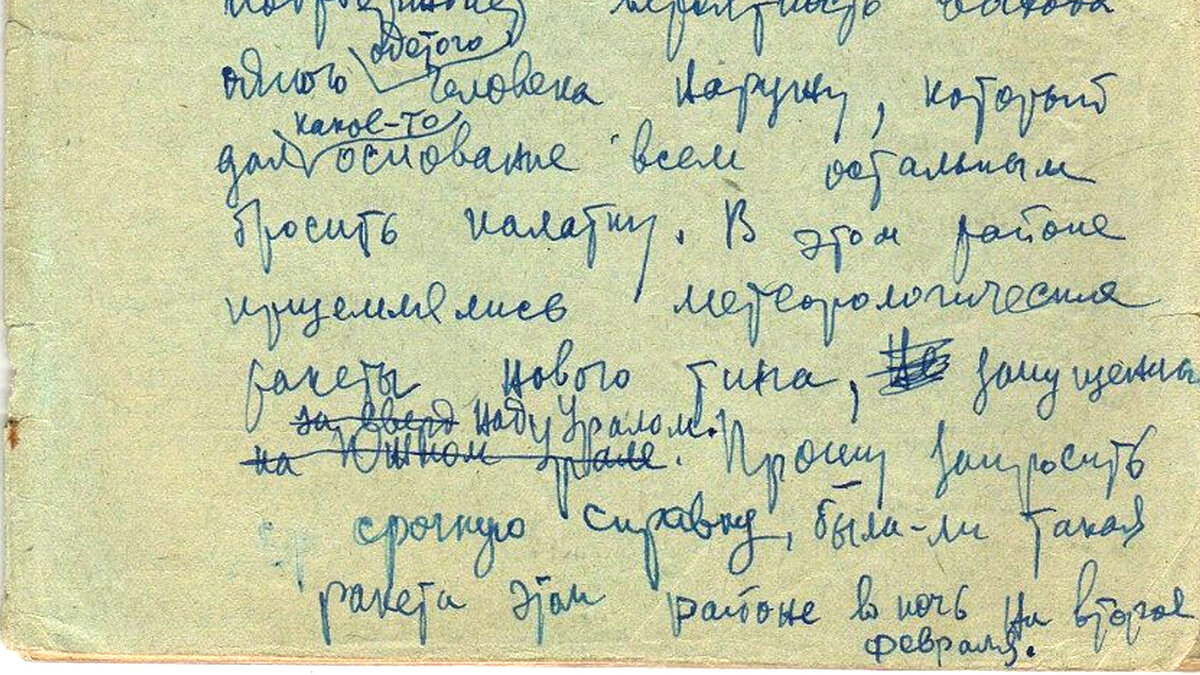 вероятность выхода
одетого
одного человека наружу, который
какое-то
дал основание всем остальным
бросить палатку. В этом районе
приземлялись метеорологические
ракеты нового типа, запущенны
над Уралом.
на Южном Урале. Прошу запросить
срочную справку, была-ли такая
ракета этом районе в ночь на второе
февраля.